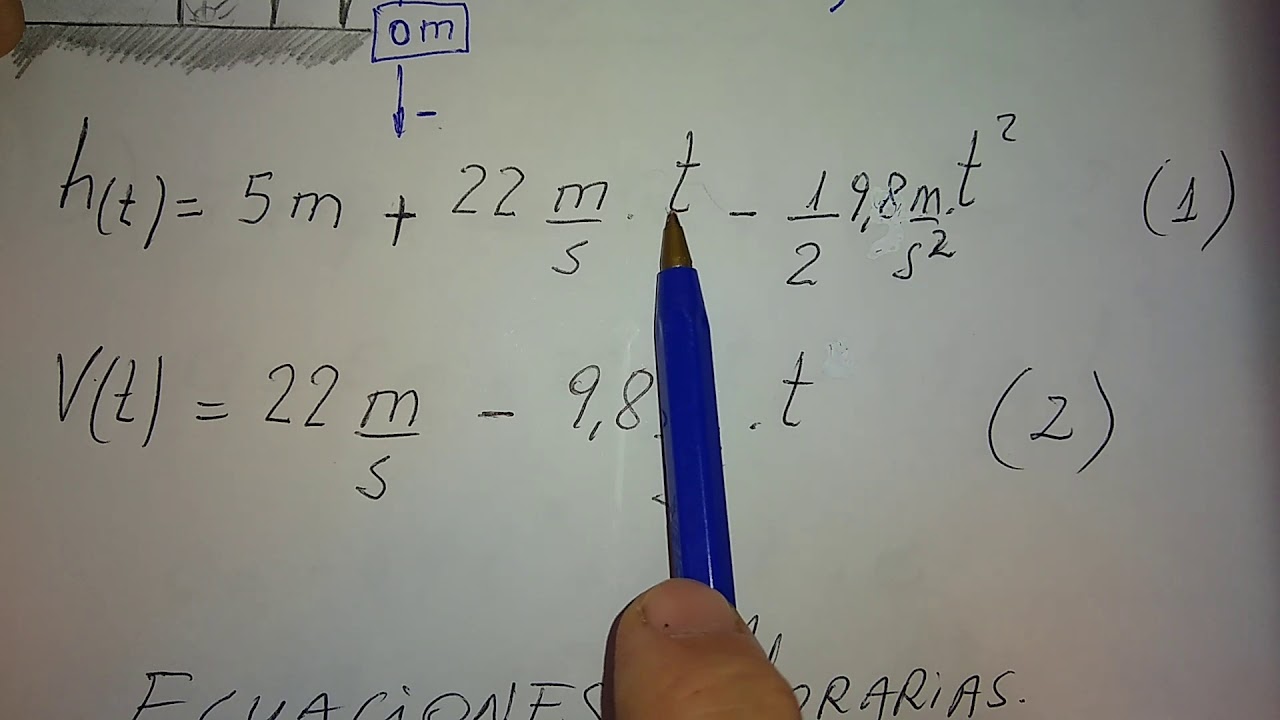 0m
-
h(t) = 5m + 22 m/s . t - 1/2 9,8 m/s² . t² (1)
V(t) = 22 m/s - 9,8 . t (2)
ECUACIONES